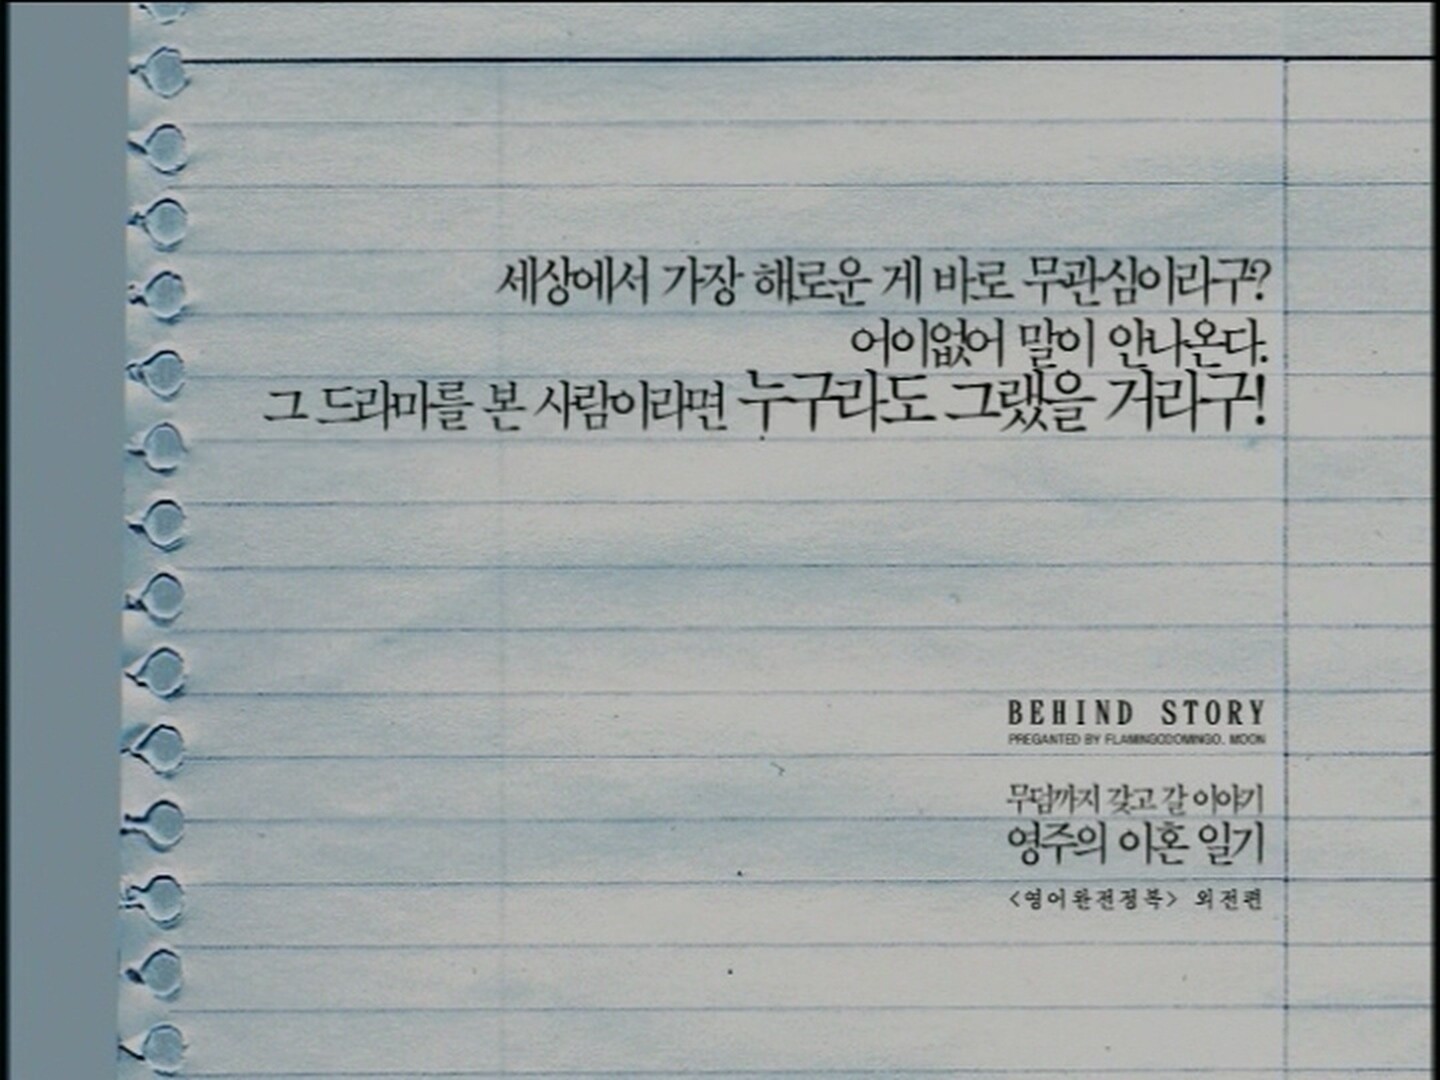 세상에서 가장 해로운 게 바로 무관심이라구?
어이없어 말이 안나온다.
그 드라마를 본 사람이라면 누구라도 그랬을 거라구!
BEHIND STORY
PREGANTED BY FLAMINGODOMINGO. MOON
무덤까지 갖고 갈 이야기
영주의 이혼 일기
<영어완전정복> 외전편